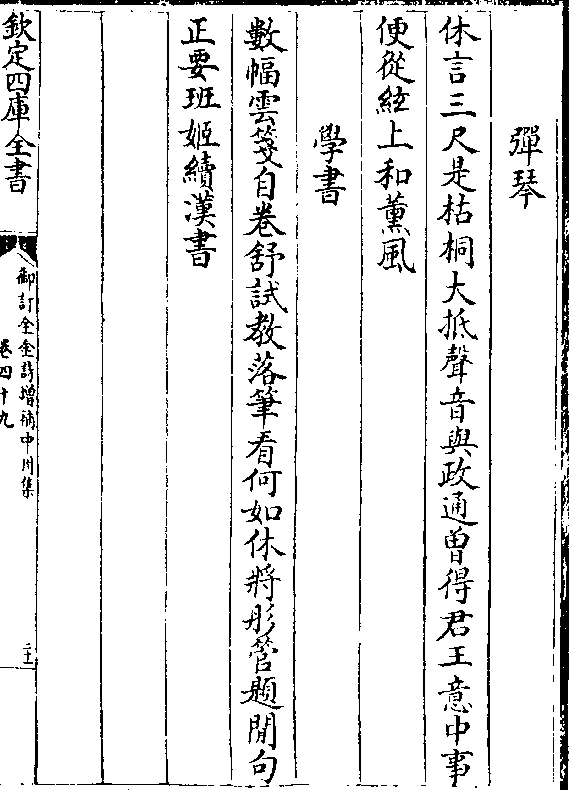 彈琴
休言三尺是枯桐大抵聲音與政通曽得君王意中事
便從絃上和薰風
學書
數幅雲箋自卷舒試教落筆看何如休將彤管題閒句
正要班姬續漢書
欽定四庫全書
御訂全金詩增補中州集
卷四十九